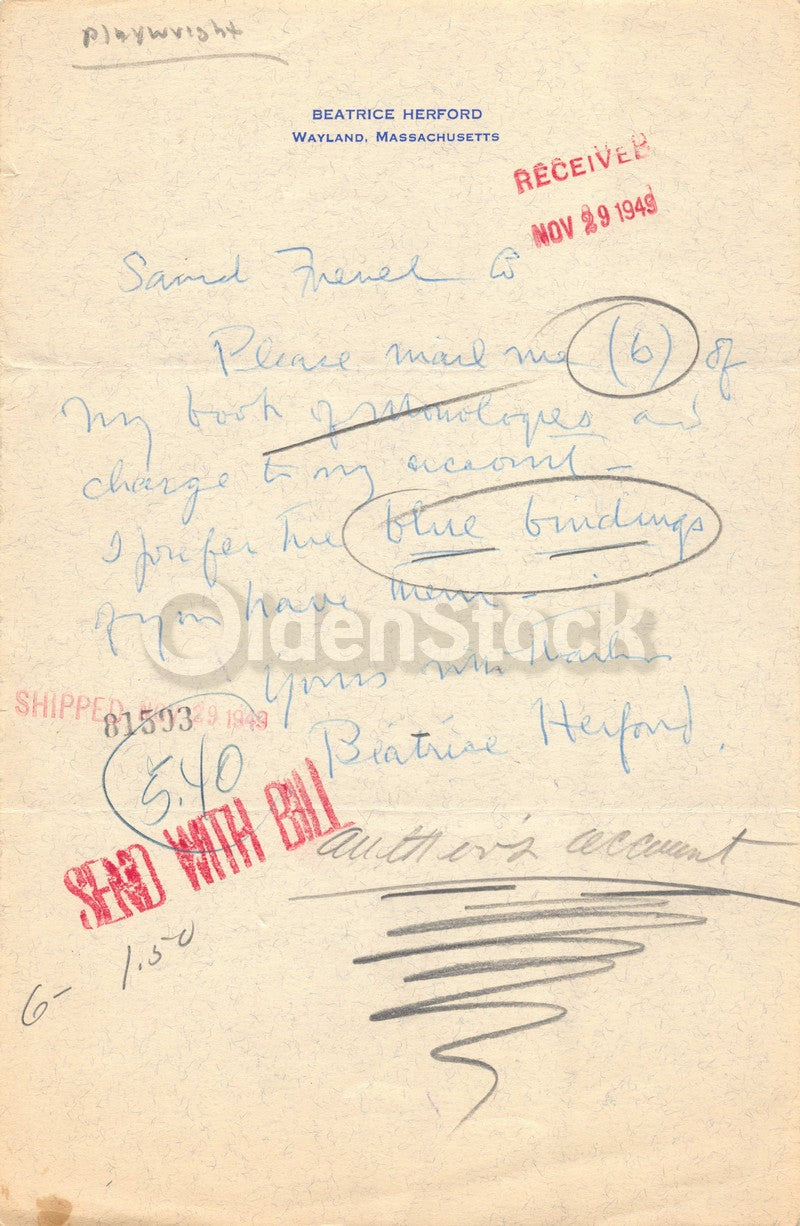 playwright
BEATRICE HERFORD
WAYLAND, MASSACHUSETTS
RECEIVED
NOV 29 1949
French Co
Please mail me (6) of
my book of monologues and
charge to my account —
I prefer the blue bindings
if you have them —
OldenStock
Yours
SHIPPED NOV 29 1949
81593
Beatrice Herford.
5.40
SEND WITH BILL
author's account
6- 1.50